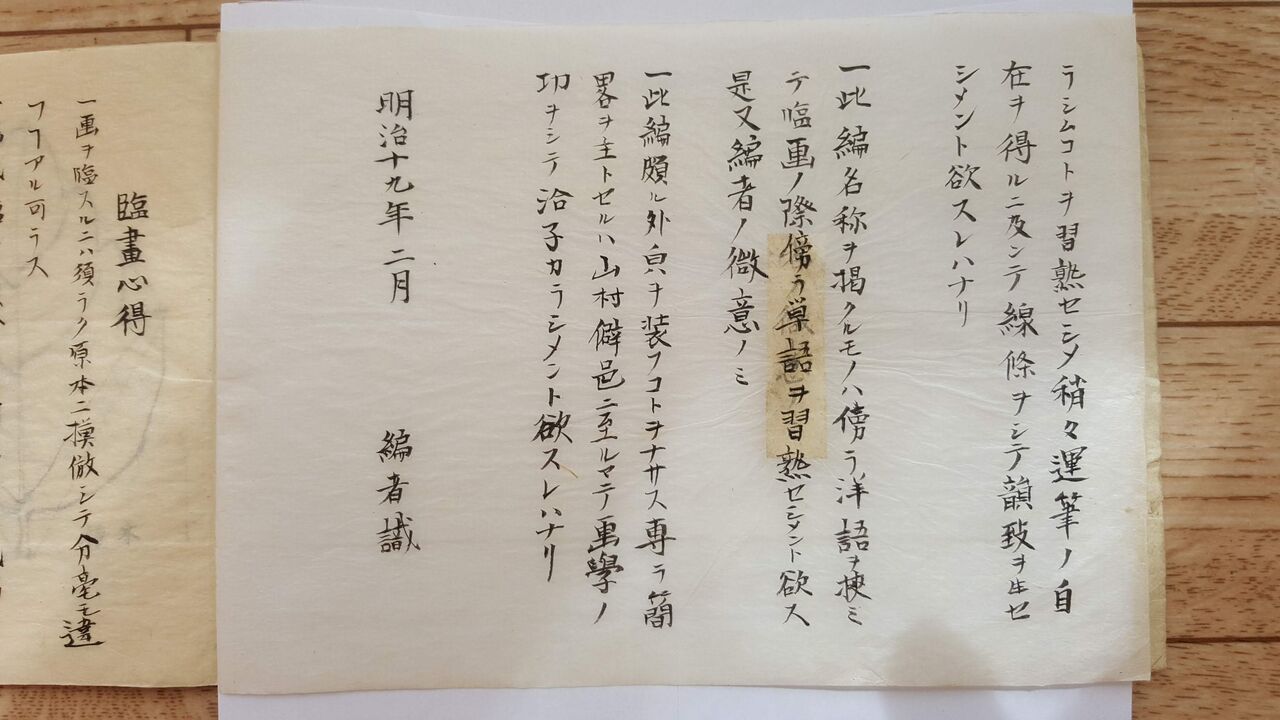 ラシムコトヲ習熟セシメ稍々運筆ノ自
在ヲ得ルニ及ンテ線條ヲシテ韻致ヲ生セ
シメント欲スレハナリ
一此編名称ヲ掲クルモノハ傍ラ洋語ヲ挾ミ
テ臨画ノ際傍ラ単語ヲ習熟セシメント欲ス
是又編者ノ微意ノミ
一此編頗ル外皃ヲ装フコトヲナサス専ラ簡
畧ヲ主トセルハ山村僻邑ニ至ルマテ画學ノ
功ヲシテ洽子カラシメント欲スレハナリ
明治十九年二月 編者識
臨畫心得
一画ヲ臨スルニハ須ラク原本ニ摸倣シテ分毫モ違
フフアル可ラス